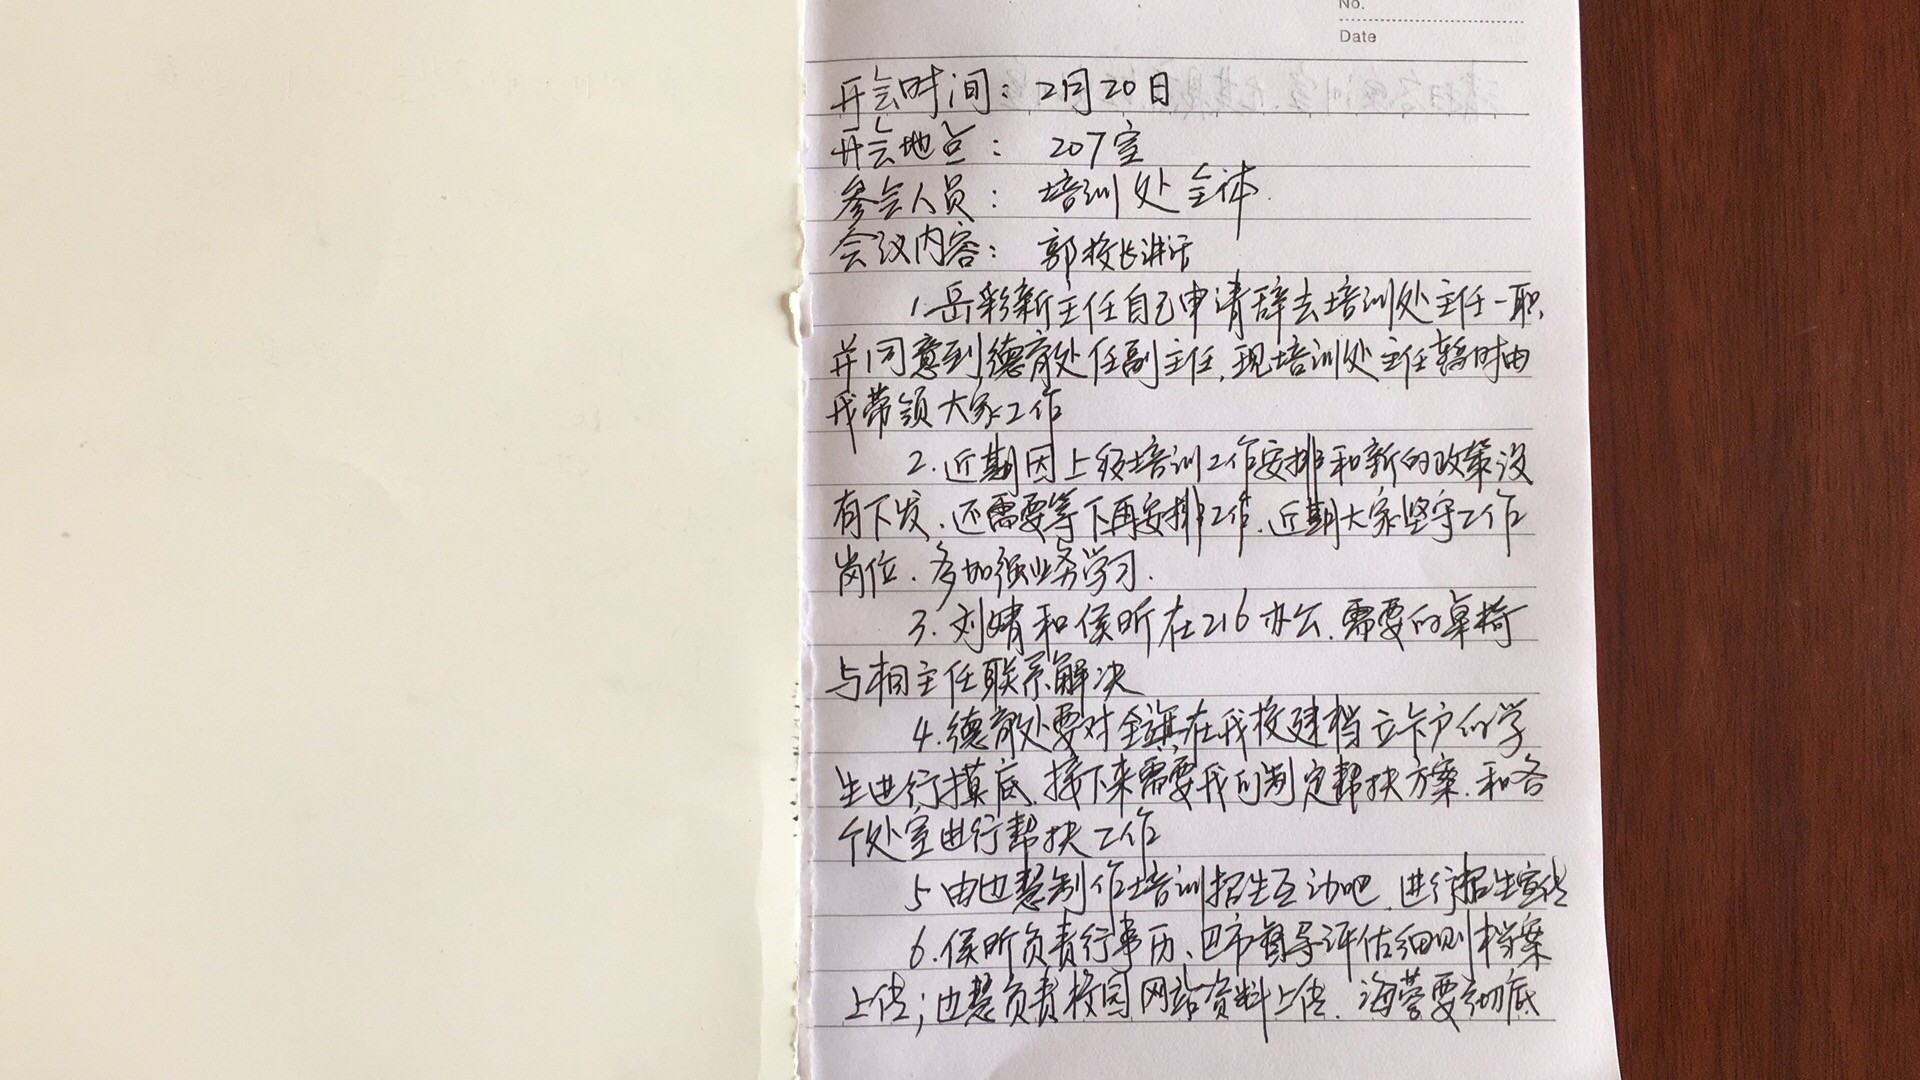 No.
Date
开会时间：2月20日
开会地点：207室
参会人员：培训处全体.
会议内容：郭校长讲话
1.岳彩新主任自己申请辞去培训处主任一职
并同意到德育处任副主任,现培训处主任暂时由
我带领大家工作
2.近期因上级培训工作安排和新的政策没
有下发,还需要等下再安排工作.近期大家坚守工作
岗位.多加强业务学习.
3.刘婧和侯昕在216办公.需要的桌椅
与相主任联系解决
4.德育处要对全旗在我校建档立卡户的学
生进行摸底.接下来需要我们制定帮扶方案.和各
个处室进行帮扶工作
5 由也慧制作培训招生互动吧.进行招生宣传
6.侯昕负责行事历、巴市督导评估细则档案
上传；也慧负责校园网站资料上传.海蓉要彻底